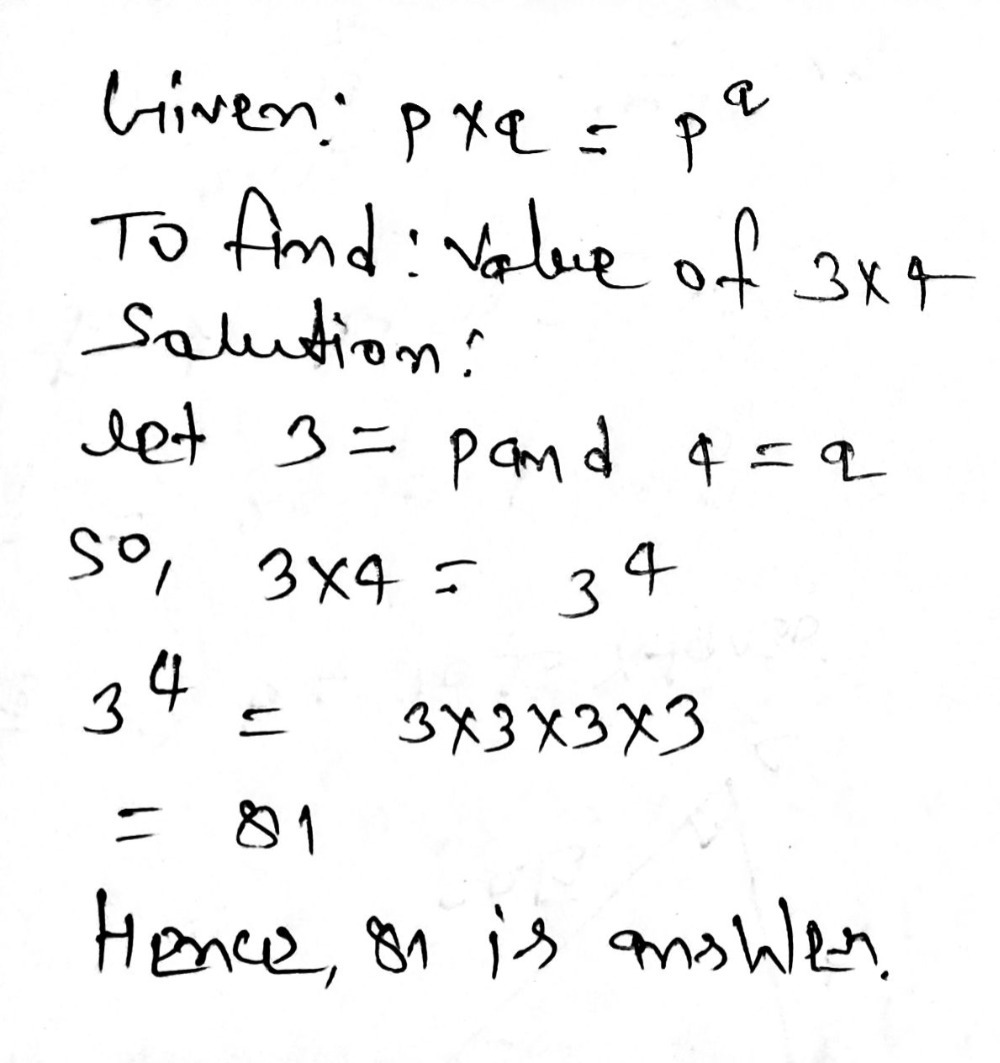 Given: p×q = p^q
To find: Value of 3×4
Solution:
let 3 = p and 4 = q
So, 3×4 = 3^4
3^4 = 3×3×3×3
= 81
Hence, 81 is answer.